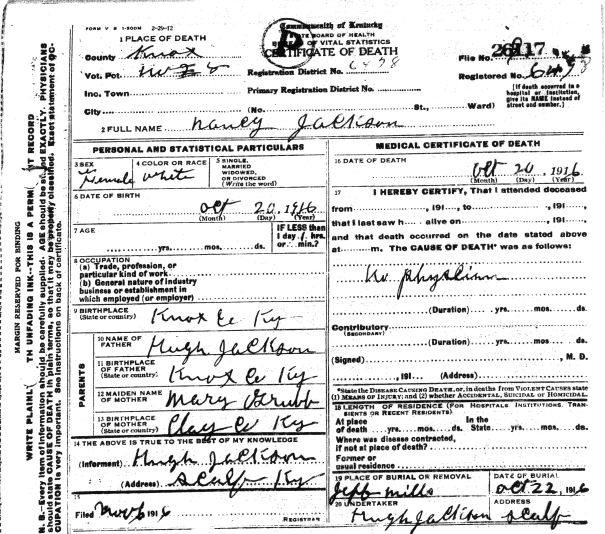 FORM V S 1-500M 2-29-12
Commonwealth of Kentucky
STATE BOARD OF HEALTH
OF VITAL STATISTICS
CERTIFICATE OF DEATH
1 PLACE OF DEATH
County Knox
Vot. Pct.
Registration District No. 6478
File No. 117
Inc. Town
Primary Registration District No.
Registered No.
[If death occurred in a hospital or institution, give its NAME instead of street and number.]
City (No. St., Ward)
2 FULL NAME Nancy Jackson
PERSONAL AND STATISTICAL PARTICULARS
3 SEX Female
4 COLOR OR RACE White
5 SINGLE, MARRIED WIDOWED, OR DIVORCED (Write the word)
6 DATE OF BIRTH
Oct 20 1916
(Month) (Day) (Year)
7 AGE
IF LESS than 1 day, hrs. or min.?
yrs. mos. ds.
8 OCCUPATION
(a) Trade, profession, or particular kind of work
(b) General nature of industry business or establishment in which employed (or employer)
9 BIRTHPLACE (State or country) Knox Co Ky
PARENTS
10 NAME OF FATHER Hugh Jackson
11 BIRTHPLACE OF FATHER (State or country) Knox Co Ky
12 MAIDEN NAME OF MOTHER Mary Grubb
13 BIRTHPLACE OF MOTHER (State or country) Clay Co Ky
14 THE ABOVE IS TRUE TO THE BEST OF MY KNOWLEDGE
(Informant) Hugh Jackson
(Address) Scalf Ky
15
Filed Nov 6 1916
REGISTRAR
MEDICAL CERTIFICATE OF DEATH
16 DATE OF DEATH
Oct 20, 1916
(Month) (Day) (Year)
17 I HEREBY CERTIFY, That I attended deceased
from , 191 , to , 191 ,
that I last saw h alive on , 191 ,
and that death occurred on the date stated above
at m. The CAUSE OF DEATH* was as follows:
No physician
(Duration) yrs. mos. ds.
Contributory (SECONDARY)
(Duration) yrs. mos. ds.
(Signed) , M. D.
, 191 (Address)
*State the DISEASE CAUSING DEATH, or, in deaths from VIOLENT CAUSES state (1) MEANS OF INJURY; and (2) whether ACCIDENTAL, SUICIDAL or HOMICIDAL.
18 LENGTH OF RESIDENCE (FOR HOSPITALS, INSTITUTIONS, TRANSIENTS OR RECENT RESIDENTS).
At place of death yrs. mos. ds. In the State yrs. mos. ds.
Where was disease contracted, if not at place of death?
Former or usual residence
19 PLACE OF BURIAL OR REMOVAL Jeff Mills
DATE OF BURIAL Oct 22, 1916
20 UNDERTAKER Hugh Jackson
ADDRESS Scalf
MARGIN RESERVED FOR BINDING
WRITE PLAINLY TH UNFADING INK--THIS IS A PERM NT RECORD
N. B.--Every item of information should be carefully supplied. AGE should be stated EXACTLY. PHYSICIANS should state CAUSE OF DEATH in plain terms, so that it may be properly classified. Exact statement of OCCUPATION is very important. See instructions on back of certificate.